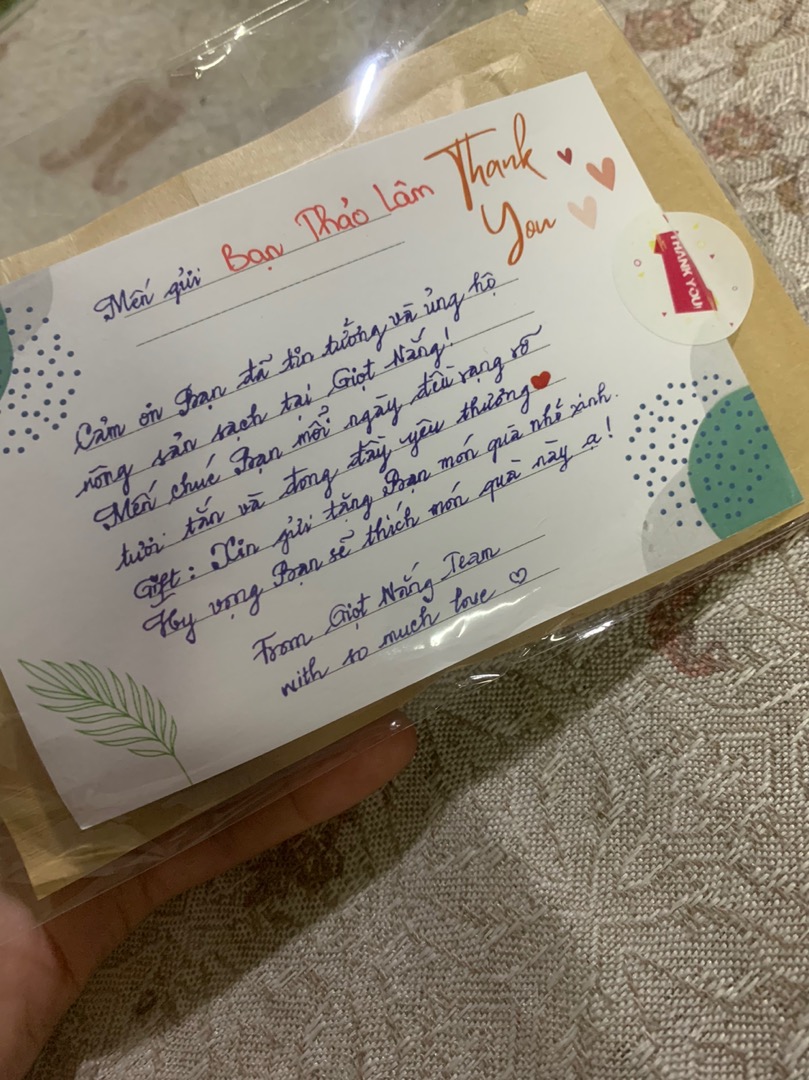 Thank
You
Mến gửi Bạn Thảo Lâm
Cảm ơn Bạn đã tin tưởng và ủng hộ
nông sản sạch tại Giọt Nắng!
Mến chúc Bạn mỗi ngày đều rạng rỡ
tươi tắn và đong đầy yêu thương
Gift: Xin gửi tặng Bạn món quà nhỏ xinh.
Hy vọng Bạn sẽ thích món quà này ạ!
From Giọt Nắng Team
with so much love
THANK YOU!